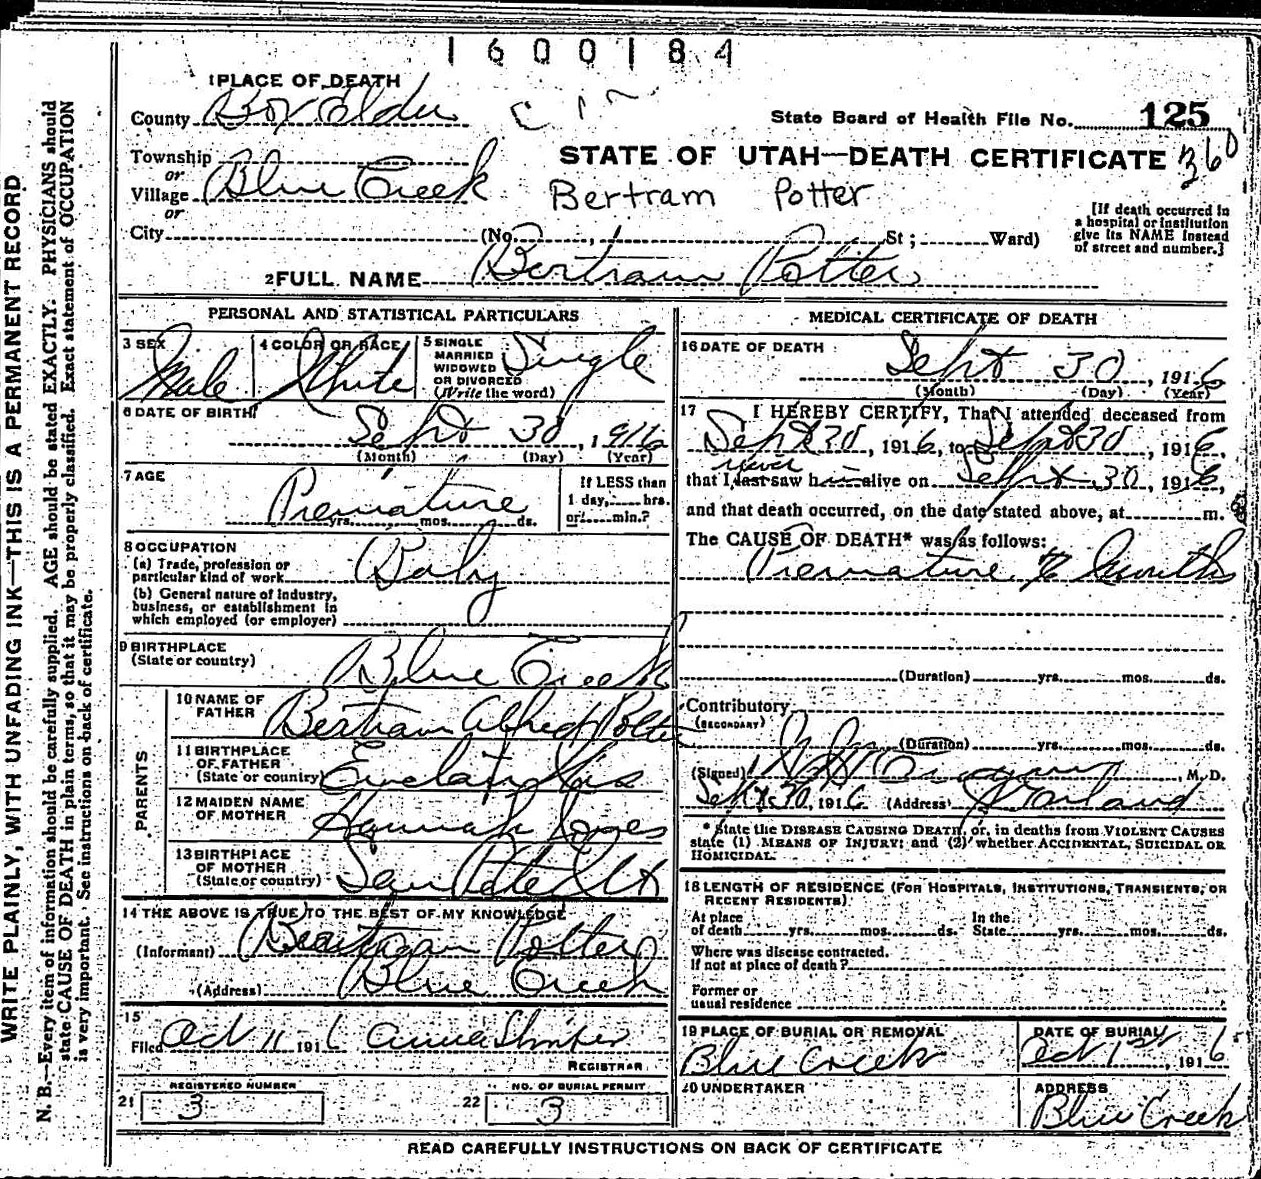 1600184
1 PLACE OF DEATH
County Box Elder
State Board of Health File No. 125
Township
or
Village Blue Creek
or
City (No. St; Ward)
STATE OF UTAH—DEATH CERTIFICATE
360
Bertram Potter
[If death occurred in
a hospital or institution
give its NAME instead
of street and number.]
2 FULL NAME Bertram Potter
PERSONAL AND STATISTICAL PARTICULARS
3 SEX Male
4 COLOR OR RACE White
5 SINGLE
MARRIED
WIDOWED
OR DIVORCED
(Write the word) Single
6 DATE OF BIRTH
Sept 30, 1916
(Month) (Day) (Year)
7 AGE
Premature
yrs. mos. ds.
If LESS than
1 day, hrs.
or min.?
8 OCCUPATION
(a) Trade, profession or
particular kind of work Baby
(b) General nature of industry,
business, or establishment in
which employed (or employer)
9 BIRTHPLACE
(State or country) Blue Creek
PARENTS
10 NAME OF
FATHER Bertram Alfred Potter
11 BIRTHPLACE
OF FATHER
(State or country)
12 MAIDEN NAME
OF MOTHER Hannah Jones
13 BIRTHPLACE
OF MOTHER
(State or country) San Pete Ut
14 THE ABOVE IS TRUE TO THE BEST OF MY KNOWLEDGE
(Informant) Potter
(Address) Blue Creek
15
Filed Oct 11 1916 Anna
REGISTRAR
REGISTERED NUMBER
21 3
NO. OF BURIAL PERMIT
22 3
MEDICAL CERTIFICATE OF DEATH
16 DATE OF DEATH
Sept 30, 1916
(Month) (Day) (Year)
17 I HEREBY CERTIFY, That I attended deceased from
Sept 30, 1916, to Sept 30, 1916,
never
that I last saw h alive on Sept 30, 1916,
and that death occurred, on the date stated above, at m.
The CAUSE OF DEATH* was as follows:
Premature months
(Duration) yrs. mos. ds.
Contributory
(SECONDARY)
(Duration) yrs. mos. ds.
(Signed) , M. D.
Sept 30, 1916 (Address) Garland
* State the DISEASE CAUSING DEATH, or, in deaths from VIOLENT CAUSES
state (1) MEANS OF INJURY; and (2) whether ACCIDENTAL, SUICIDAL OR
HOMICIDAL.
18 LENGTH OF RESIDENCE (FOR HOSPITALS, INSTITUTIONS, TRANSIENTS, OR
RECENT RESIDENTS)
At place In the
of death yrs. mos. ds. State yrs. mos. ds.
Where was disease contracted.
If not at place of death?
Former or
usual residence
19 PLACE OF BURIAL OR REMOVAL
Blue Creek
DATE OF BURIAL
Oct 1st, 1916
20 UNDERTAKER
ADDRESS
Blue Creek
READ CAREFULLY INSTRUCTIONS ON BACK OF CERTIFICATE
WRITE PLAINLY, WITH UNFADING INK—THIS IS A PERMANENT RECORD
N. B.—Every item of information should be carefully supplied. AGE should be stated EXACTLY. PHYSICIANS should
state CAUSE OF DEATH in plain terms, so that it may be properly classified. Exact statement of OCCUPATION
is very important. See instructions on back of certificate.